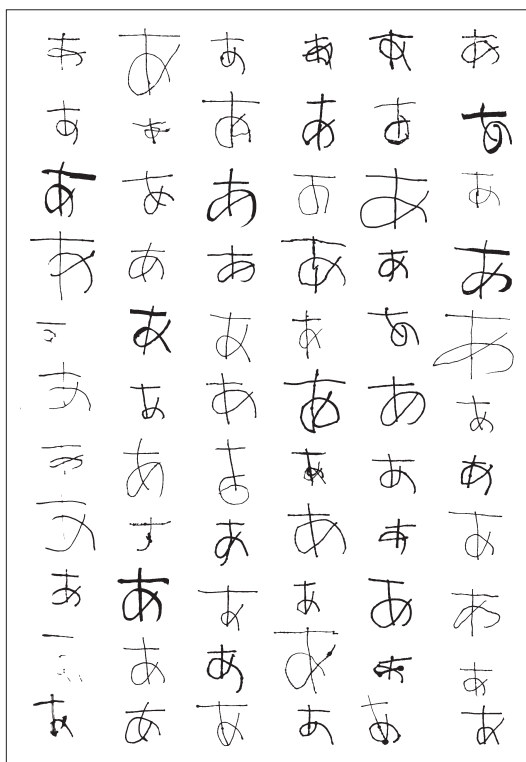 あ あ あ あ あ あ
あ あ あ あ あ あ
あ あ あ あ あ あ
あ あ あ あ あ あ
あ あ あ あ あ
あ あ あ あ あ あ
あ あ あ あ あ
あ あ あ あ あ
あ あ あ あ あ あ
あ あ あ あ あ
あ あ あ あ あ あ